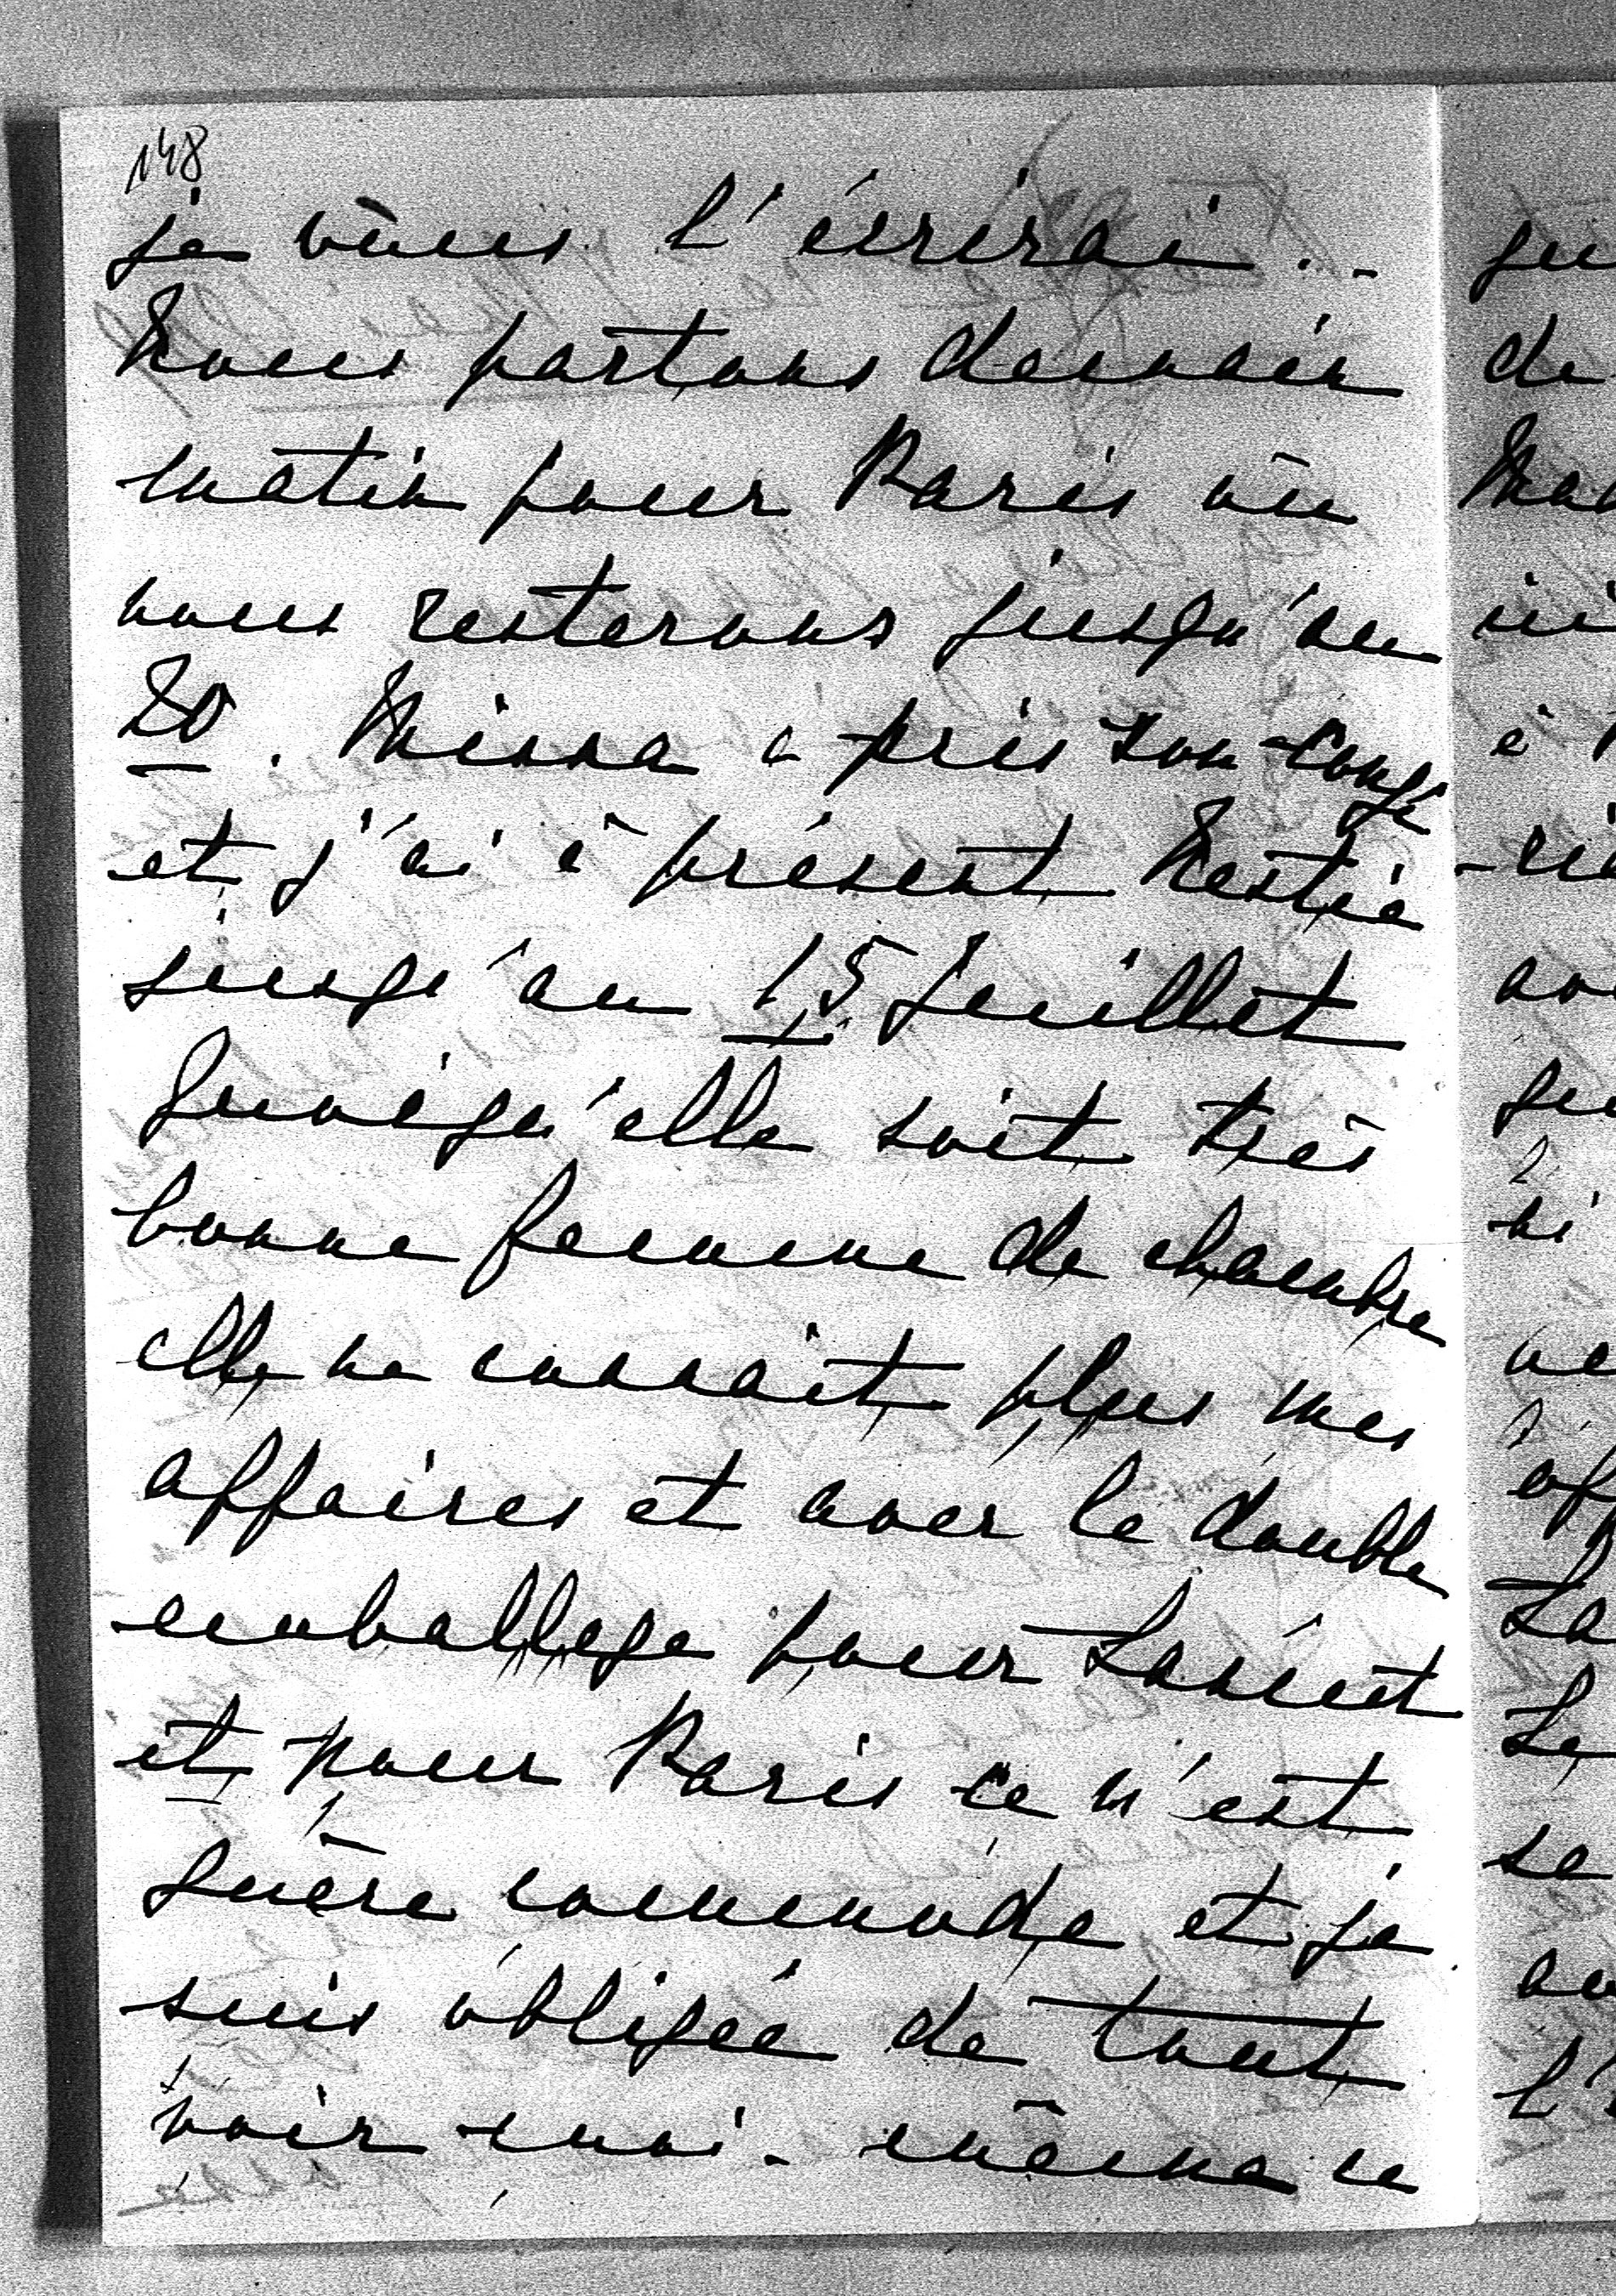 148
je vous l'écrirai..
Nous partons demain
matin pour Paris où
nous resterons jusqu'au
20. Missa a pris son congé
et j'ai à présent Nestia
jusqu'au 15 Juillet
Quoiqu'elle soit très
bonne femme de chambre
elle ne connait plus mes
affaires et avec le double
emballage pour
et pour Paris ce n'est
guère commode et je
suis obligée de tout
voir moi-même ce